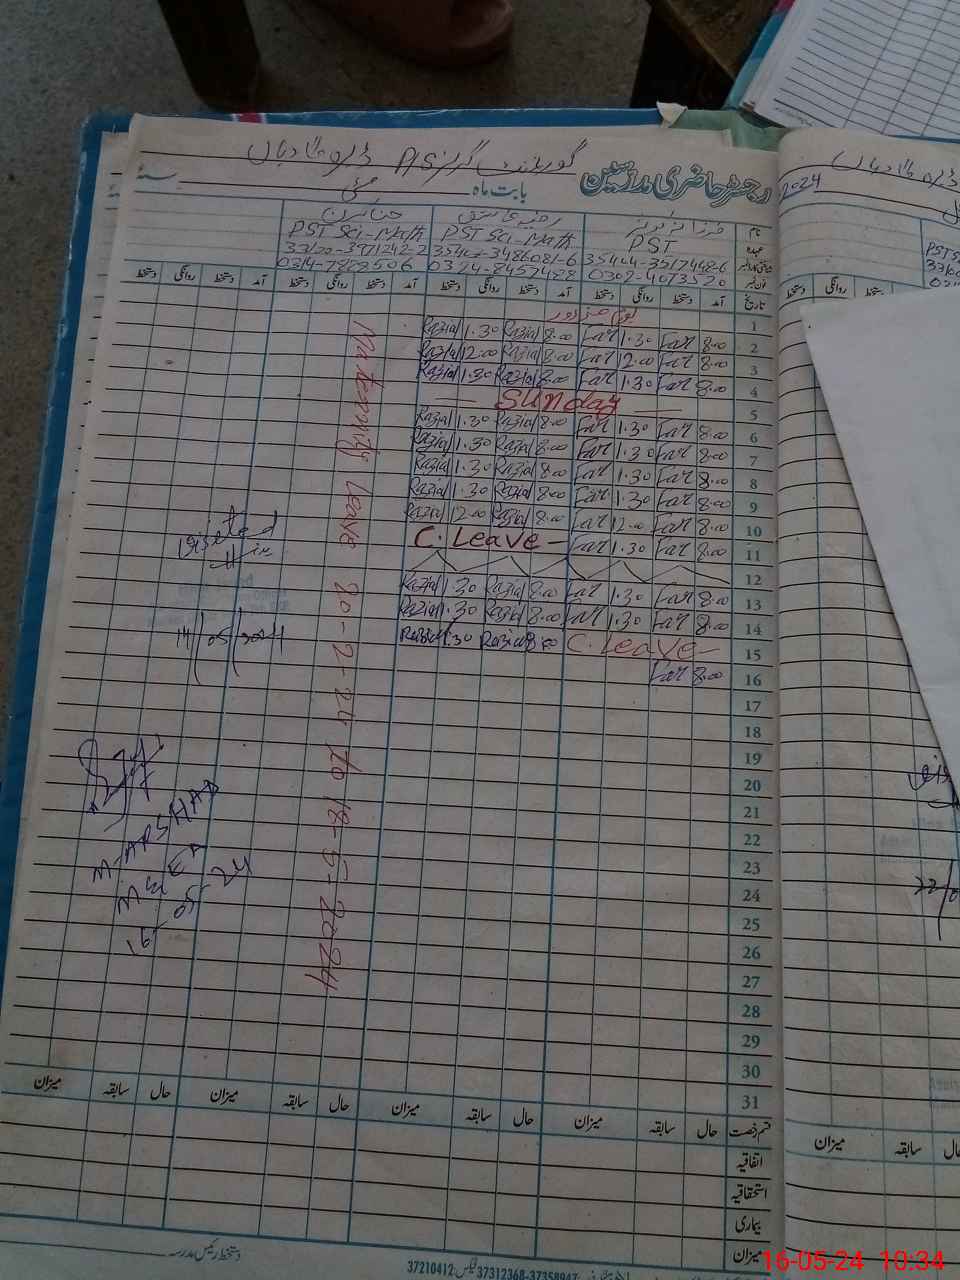 گورنمنٹ گرلز P/S
رجسٹر حاضری مدرسین بابت ماہ مئی سنہ
نام
عہدہ PST PST Sci-Math PST Sci-Math
شناختی کارڈ نمبر 35404-3517448-6 3486081-6 33120-3971242-2
فون نمبر 0302-4073520 0324-8457428 0314-7868506
تاریخ آمد دستخط روانگی دستخط آمد دستخط روانگی دستخط آمد دستخط روانگی دستخط
1 یوم مزدور
2 8.00 Far 1.30 Far 8.00 Razia 1.30 Razia
3 8.00 Far 12.00 Far 8.00 Razia 12.00 Razia
4 8.00 Far 1.30 Far 8.00 Razia 1.30 Razia
5 Sunday
6 8.00 Far 1.30 Far 8.00 Razia 1.30 Razia
7 8.00 Far 1.30 Far 8.00 Razia 1.30 Razia
8 8.00 Far 1.30 Far 8.00 Razia 1.30 Razia
9 8.00 Far 1.30 Far 8.00 Razia 1.30 Razia
10 8.00 Far 12.00 Far 8.00 Razia 12.00 Razia
11 8.00 Far 1.30 Far C. Leave
12
13 8.00 Far 1.30 Far 8.00 Razia 1.30 Razia
14 8.00 Far 1.30 Far 8.00 Razia 1.30 Razia
15 C. Leave 8.00 Razia 1.30 Razia
16 8.00 Far
17
18
19
20
21
22
23
24
25
26
27
28
29
30
31
Maternity Leave 20-2-24 to 18-5-2024
Visited
14/05/2024
M-ARSHAD
MEA
16-05-24
قسم رخصت حال سابقہ میزان حال سابقہ میزان حال سابقہ میزان حال سابقہ میزان
اتفاقیہ
استحقاقیہ
بیماری
میزان
دستخط رئیس مدرسہ
37312368-37358947 فیکس: 37210412
2024
میزان سابقہ حال
16-05-24 10:34